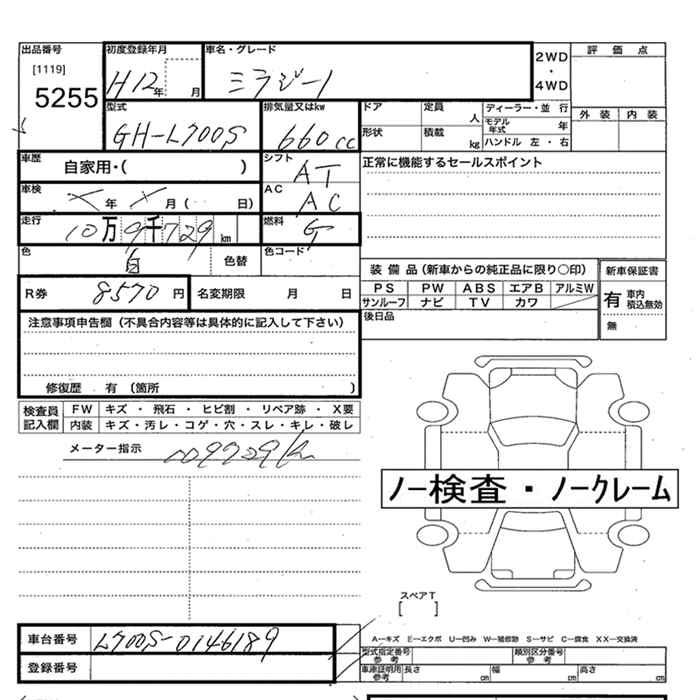 出品番号 初度登録年月 車名・グレード 2WD ・ 4WD 評価点
[1119]
5255
H12年 月 ミラジーノ
外装 内装
型式 排気量又はkw ドア 定員 人 ディーラー・並行
GH-L700S 660cc
モデル年式 年
形状 積載 kg ハンドル 左・右
車歴 自家用・( ) シフト AT
正常に機能するセールスポイント
車検 年 月( 日) AC AC
走行 10万9千729km 燃料 G
色 白 色替 色コード
装備品(新車からの純正品に限り○印) 新車保証書
PS PW ABS エアB アルミW
サンルーフ ナビ TV カワ
有 車内積込無効
無
R券 8570円 名変期限 月 日
後日品
注意事項申告欄(不具合内容等は具体的に記入して下さい)
修復歴 有 (箇所 )
検査員記入欄 FW キズ・飛石・ヒビ割・リペア跡・X要
内装 キズ・汚レ・コゲ・穴・スレ・キレ・破レ
メーター指示 109729k
ノー検査・ノークレーム
スペアT
[ ]
車台番号 L700S-0146189
登録番号
A―キズ E―エクボ U―凹み W―補修跡 S―サビ C―腐食 XX―交換済
型式指定番号 参考 類別区分番号 参考
車庫証明用 参考 長さ cm 幅 cm 高さ cm